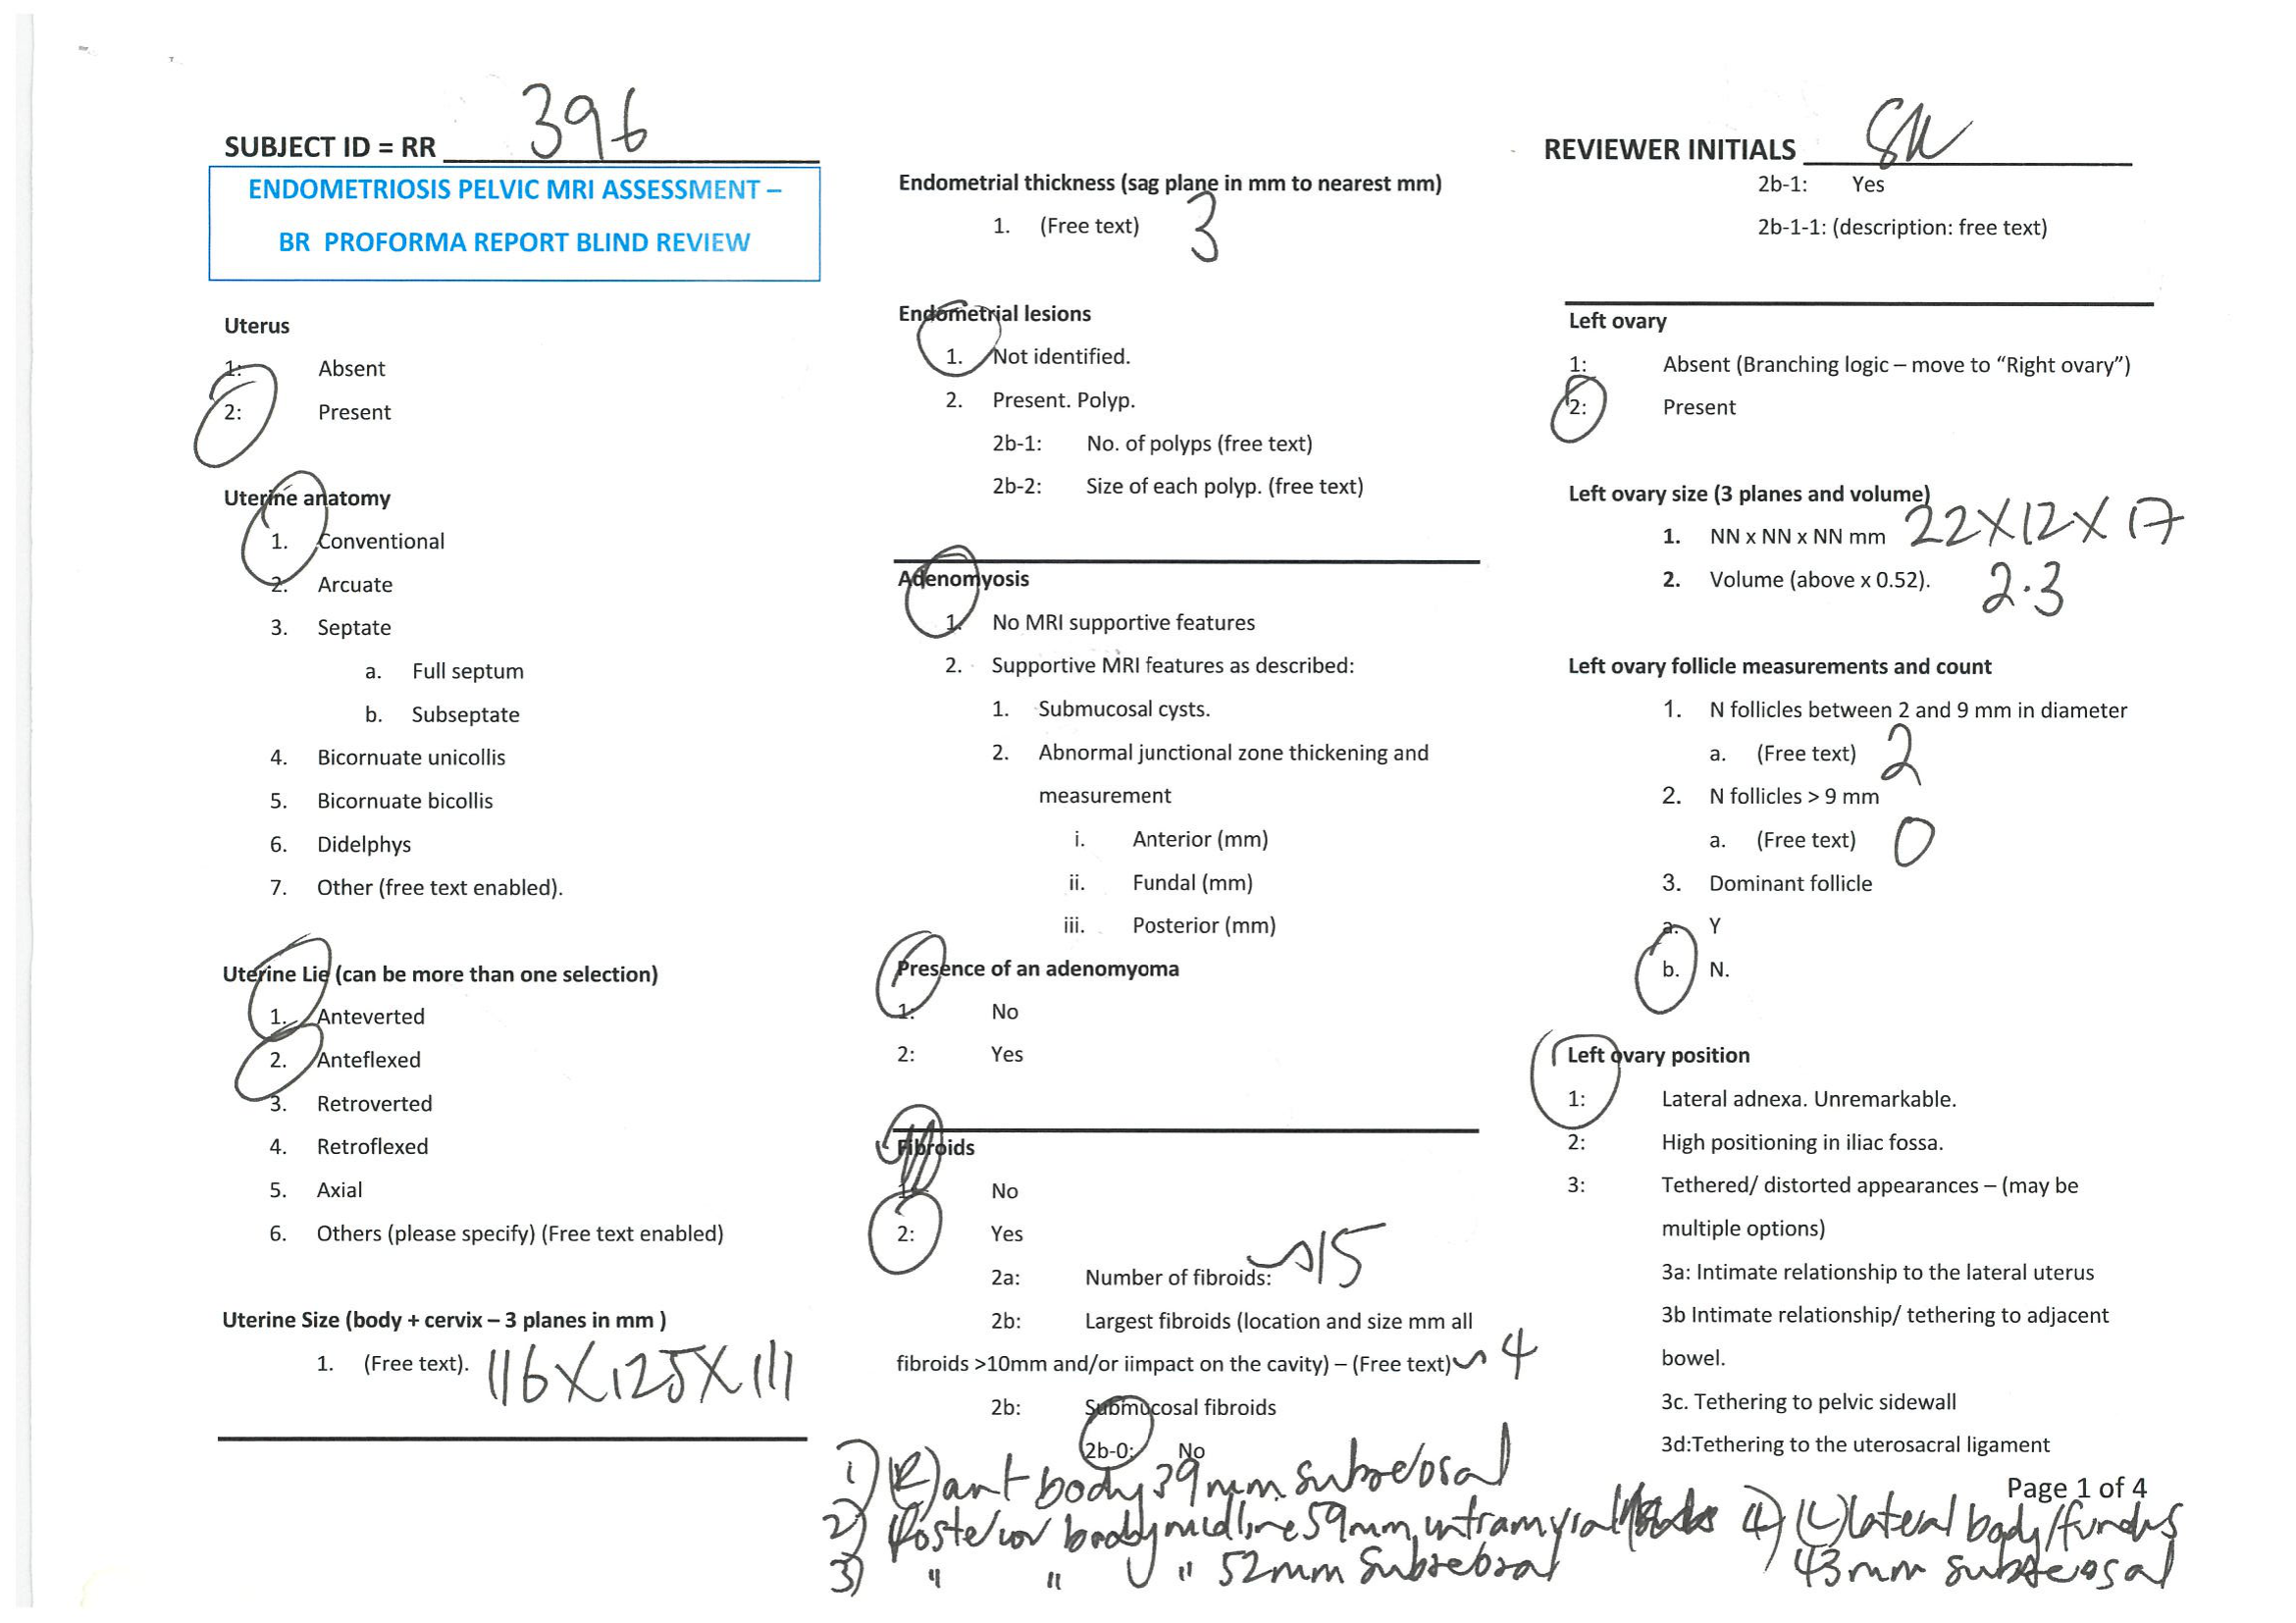 SUBJECT ID = RR 396
ENDOMETRIOSIS PELVIC MRI ASSESSMENT –
BR PROFORMA REPORT BLIND REVIEW
Uterus
1: Absent
2: Present
Uterine anatomy
1. Conventional
2. Arcuate
3. Septate
a. Full septum
b. Subseptate
4. Bicornuate unicollis
5. Bicornuate bicollis
6. Didelphys
7. Other (free text enabled).
Uterine Lie (can be more than one selection)
1. Anteverted
2. Anteflexed
3. Retroverted
4. Retroflexed
5. Axial
6. Others (please specify) (Free text enabled)
Uterine Size (body + cervix – 3 planes in mm )
1. (Free text). 116X125X111
Endometrial thickness (sag plane in mm to nearest mm)
1. (Free text) 3
Endometrial lesions
1. Not identified.
2. Present. Polyp.
2b-1: No. of polyps (free text)
2b-2: Size of each polyp. (free text)
Adenomyosis
1. No MRI supportive features
2. Supportive MRI features as described:
1. Submucosal cysts.
2. Abnormal junctional zone thickening and
measurement
i. Anterior (mm)
ii. Fundal (mm)
iii. Posterior (mm)
Presence of an adenomyoma
1: No
2: Yes
Fibroids
1: No
2: Yes
2a: Number of fibroids: ~15
2b: Largest fibroids (location and size mm all
fibroids >10mm and/or iimpact on the cavity) – (Free text) ~ 4
2b: Submucosal fibroids
2b-0: No
1) (R) ant body 39mm subserosal
2) Posterior body midline 59mm intramural
3) " " " 52mm subserosal
4) (L) lateral body/fundus
43mm subserosal
REVIEWER INITIALS
2b-1: Yes
2b-1-1: (description: free text)
Left ovary
1: Absent (Branching logic – move to “Right ovary”)
2: Present
Left ovary size (3 planes and volume)
1. NN x NN x NN mm 22X12X17
2. Volume (above x 0.52). 2.3
Left ovary follicle measurements and count
1. N follicles between 2 and 9 mm in diameter
a. (Free text) 2
2. N follicles > 9 mm
a. (Free text) 0
3. Dominant follicle
a. Y
b. N.
Left ovary position
1: Lateral adnexa. Unremarkable.
2: High positioning in iliac fossa.
3: Tethered/ distorted appearances – (may be
multiple options)
3a: Intimate relationship to the lateral uterus
3b Intimate relationship/ tethering to adjacent
bowel.
3c. Tethering to pelvic sidewall
3d:Tethering to the uterosacral ligament
Page 1 of 4